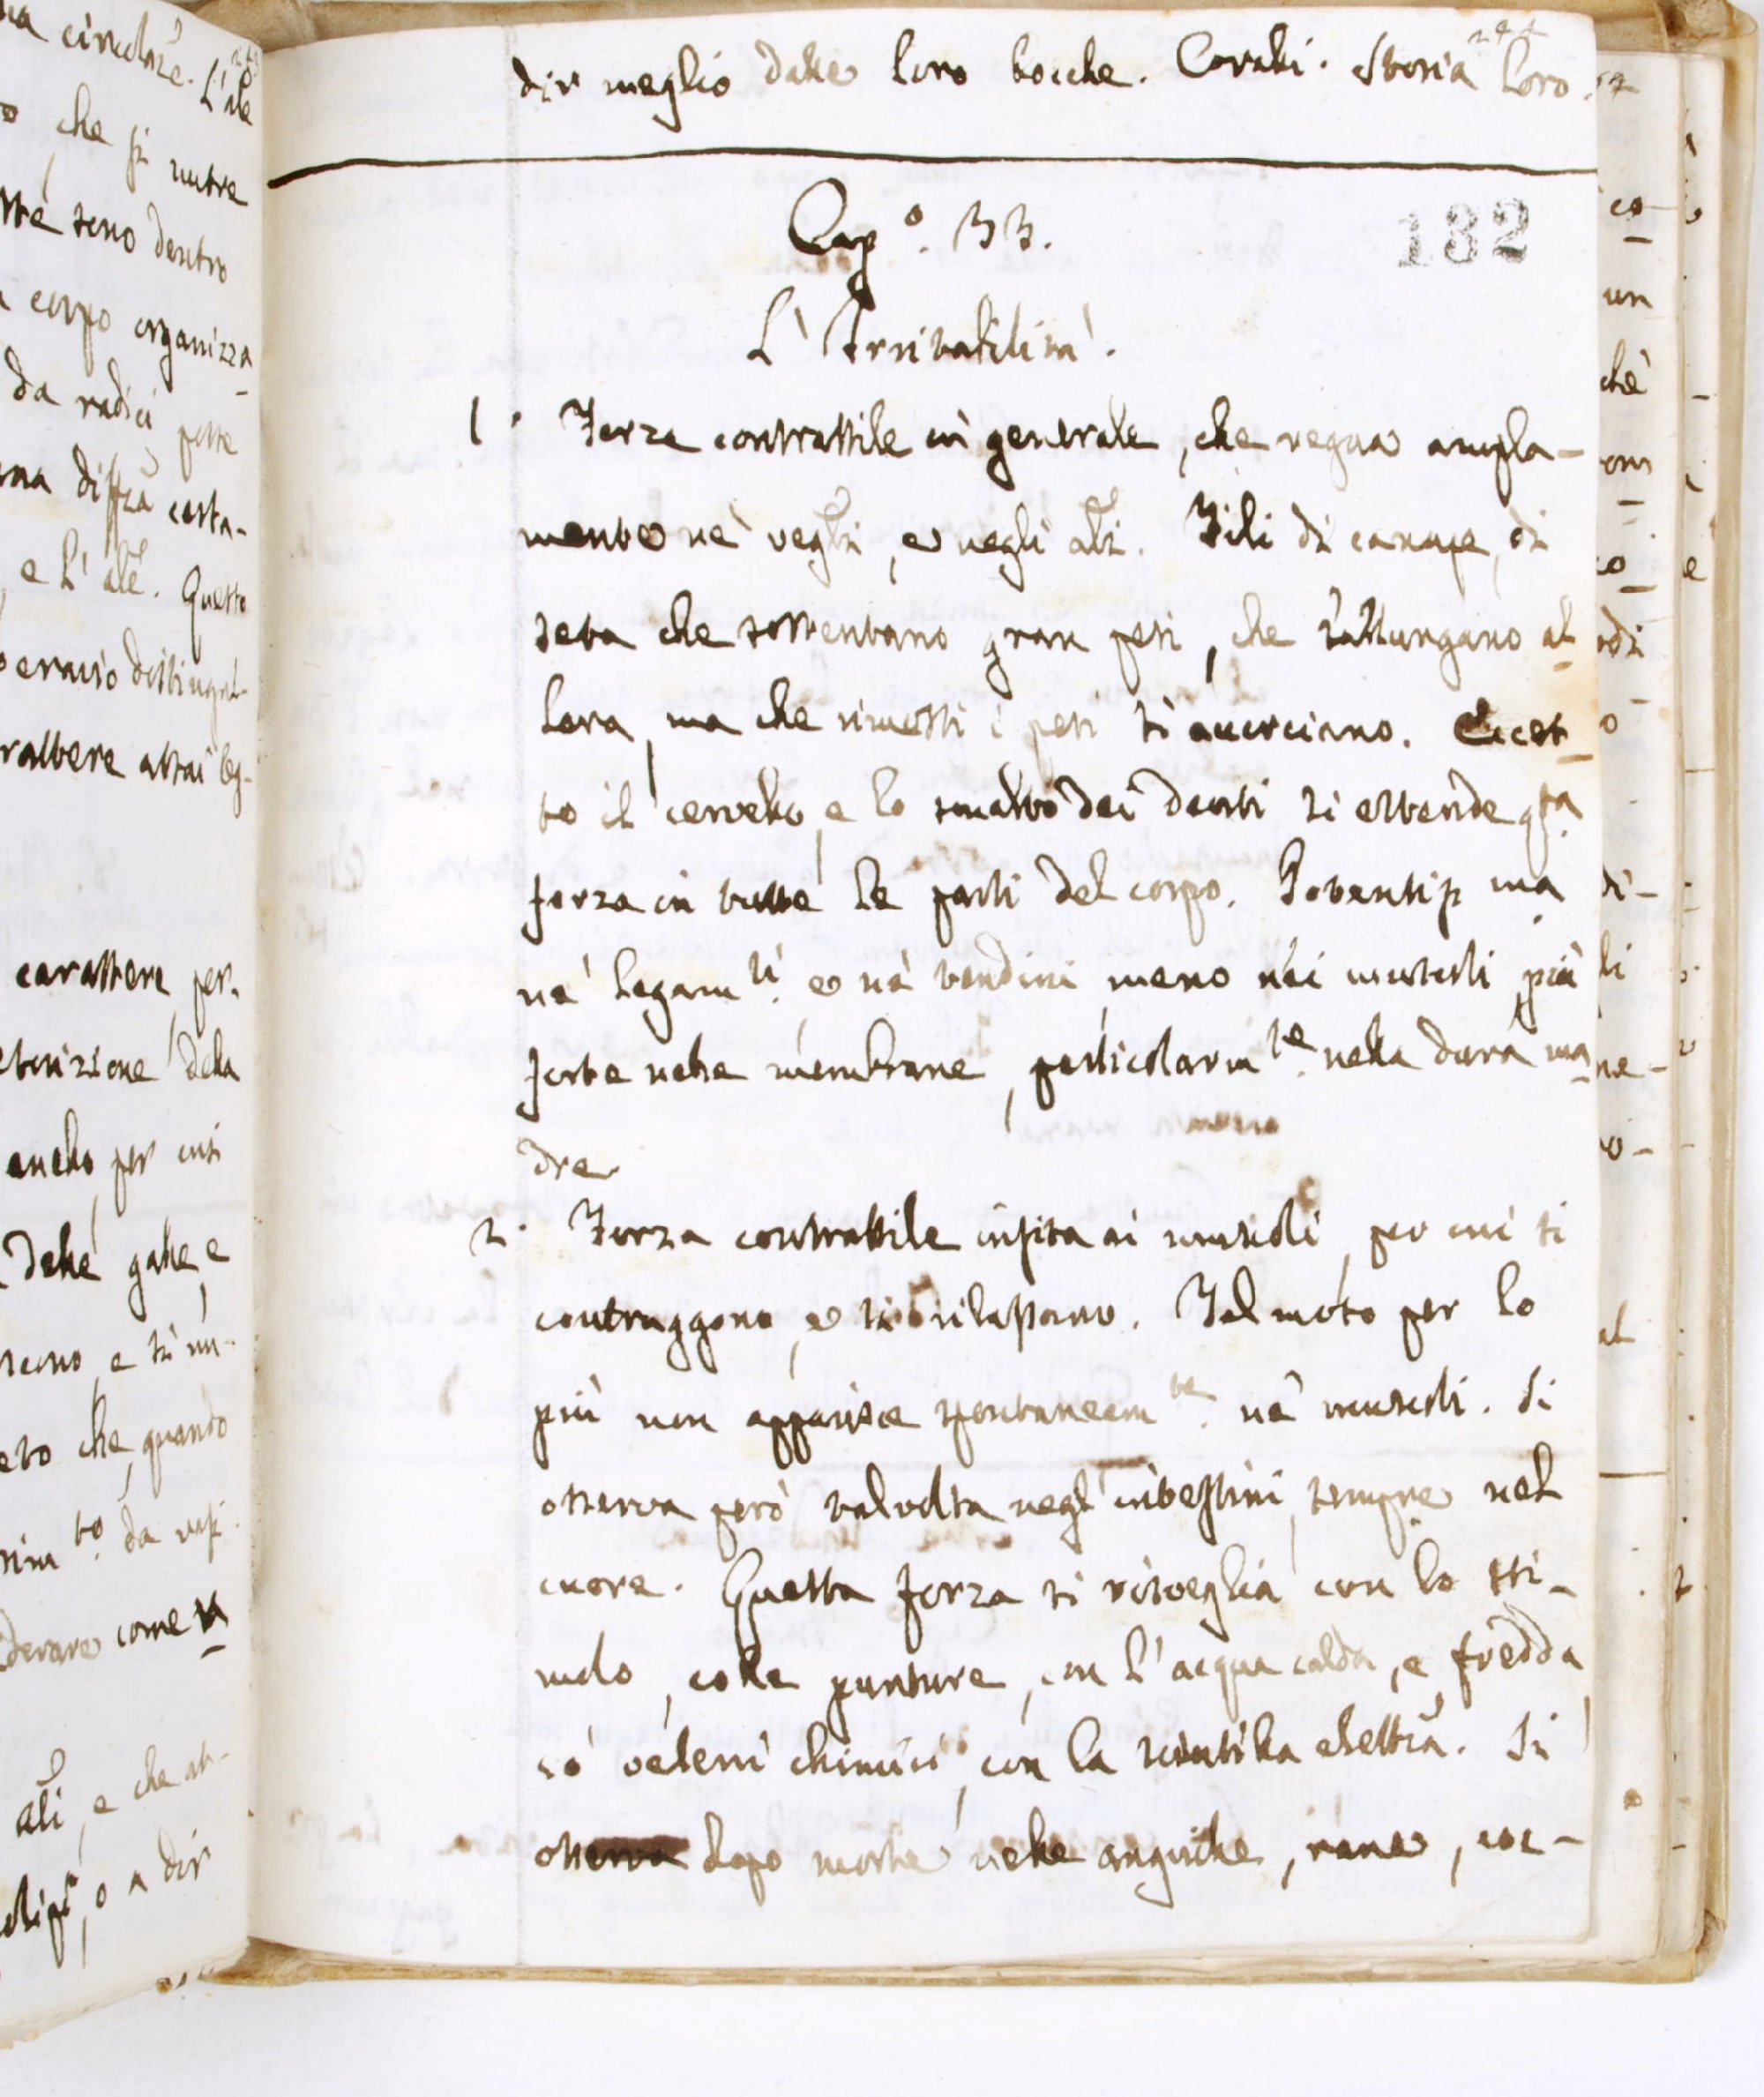 dir meglio dalle loro bocche. Coralli. Storia loro.
Cap.º 33.
132
L' Irritabilità.
1. Forza contrattile in generale, che regna ampla-
mente ne' vegli, e negli ali. Fili di canape, di
seta che sostentano gran pesi, che s'allungano al
lora, ma che rimossi i pesi si accorciano. Eccet
to il cervello, e lo smalto dei denti si estende qta
forza in tutte le parti del corpo. Potentiss ma
ne' legamti. e ne' tendini, meno nei muscoli, più
forte nelle membrane, particolarmte. nella dura ma
dre
2. Forza contrattile insita ai muscoli, per cui si
contraggono, e si rilassano. Tal moto per lo
più non apparisce spontaneamte. ne' muscoli. Si
osserva però talvolta negl' intestini, sempre nel
cuore. Questa forza si risveglia con lo sti-
molo, colle punture, con l'acqua calda, e fredda
co' veleni chimici, con la scintilla elettca. Si
osserva dopo morte nelle anguille, rane, coc-
che si nutre
dentro
corpo organizza
da radici
e l' ale. Questo
carattere, per
della
anello, per cui
delle galle, e
che, quando
come
ali, e che at-
o a dir